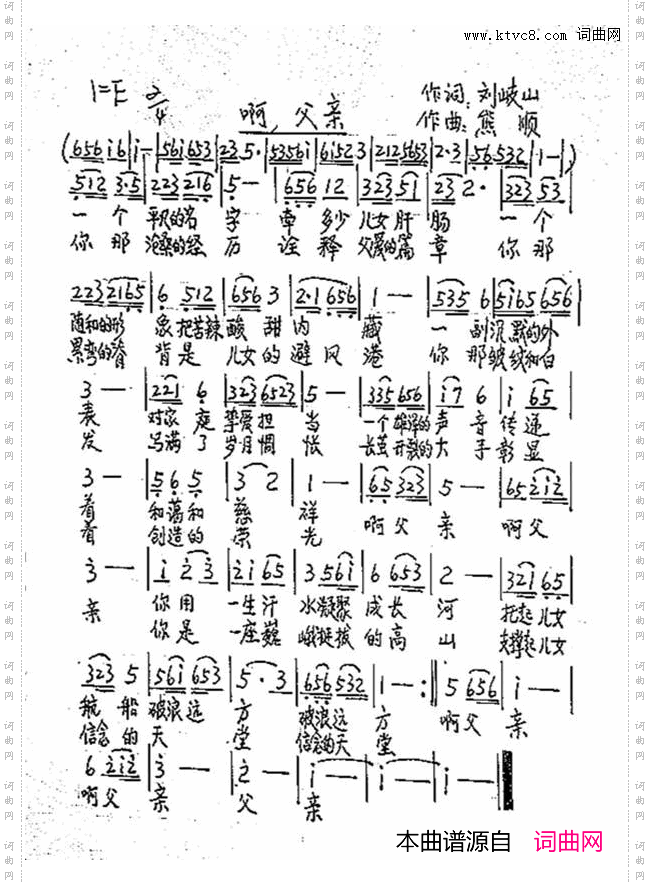 www.ktvc8.com 词曲网
1=E 2/4
啊,父亲
作词:刘岐山
作曲:熊 顺
(656 i6 | i - | 561 653 | 23 5· | 5356i | 6i52 3 | 212 5653 | 2·3 | 56 532 | 1 - |)
512 3·5 | 223 216 | 5 - | 656 12 | 323 51 | 23 2· | 323 53
一个平凡的名字牵多少儿女肝肠一个
你那沧桑的经历诠释父爱的篇章你那
223 2165 | 6 512 | 656 3 | 2·1 656 | 1 - | 535 6 | 5i65 656
随和的形象把苦辣酸甜内藏一副沉默的外
累弯的脊背是儿女的避风港你那皱纹和白
3 - | 221 6 | 323 6523 | 5 - | 335 656 | i7 6 | i 65
表对家庭挚爱担当一个雄浑的声音传递
发写满了岁月惆怅长茧开裂的大手彰显
3 - | 5 6 5 | 3 2 | 1 - | 65 323 | 5 - | 65 2i2
着和蔼和慈祥啊父亲啊父
着创造的荣光
3 - | i 2 3 | 2i 65 | 3 56i | 6 653 | 2 - | 321 65
亲你用一生汗水凝聚成长河托起儿女
你是一座巍峨挺拔的高山支撑起儿女
323 5 | 56i 653 | 5 · 3 | 656 532 | 1 - :|| 5 656 | i -
航船破浪远方破浪远方啊父亲
信念的天堂信念的天堂
6 2i2 | 3 - | 2 - | i - | i - | i - ||
啊父亲父亲
本曲谱源自 词曲网